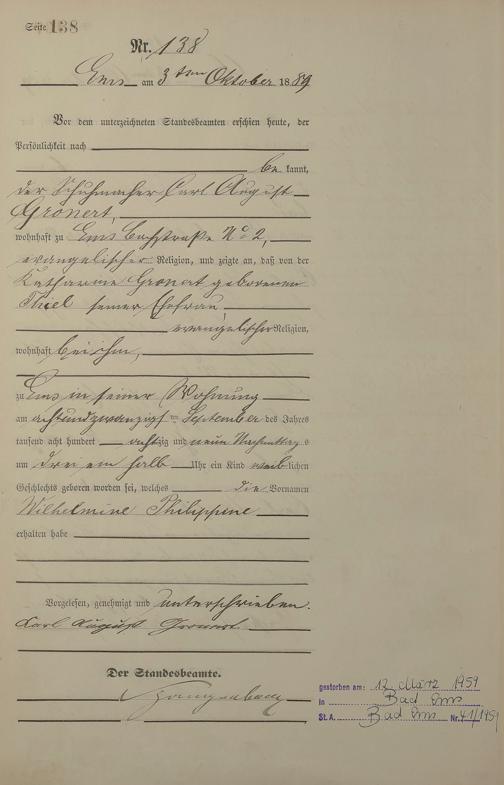 Seite 138
Nr. 138
Ems am 3 ten Oktober 1889
Vor dem unterzeichneten Standesbeamten erschien heute, der
Persönlichkeit nach
be kannt,
der Schuhmacher Carl August
Gronert,
wohnhaft zu Ems Bachstraße No 2,
evangelischer Religion, und zeigte an, daß von der
Katharine Gronert geborenen
Thiel seiner Ehefrau,
evangelischer Religion,
wohnhaft bei ihm,
zu Ems in seiner Wohnung
am achtundzwanzigsten September des Jahres
tausend acht hundert achtzig und neun Nachmittags
um drei ein halb Uhr ein Kind weiblichen
Geschlechts geboren worden sei, welches die Vornamen
Wilhelmine Philippine
erhalten habe
Vorgelesen, genehmigt und unterschrieben.
Karl August Gronert
Der Standesbeamte.
gestorben am: 12. März 1959
in Bad Ems
St. A. Bad Ems Nr. 41/1959